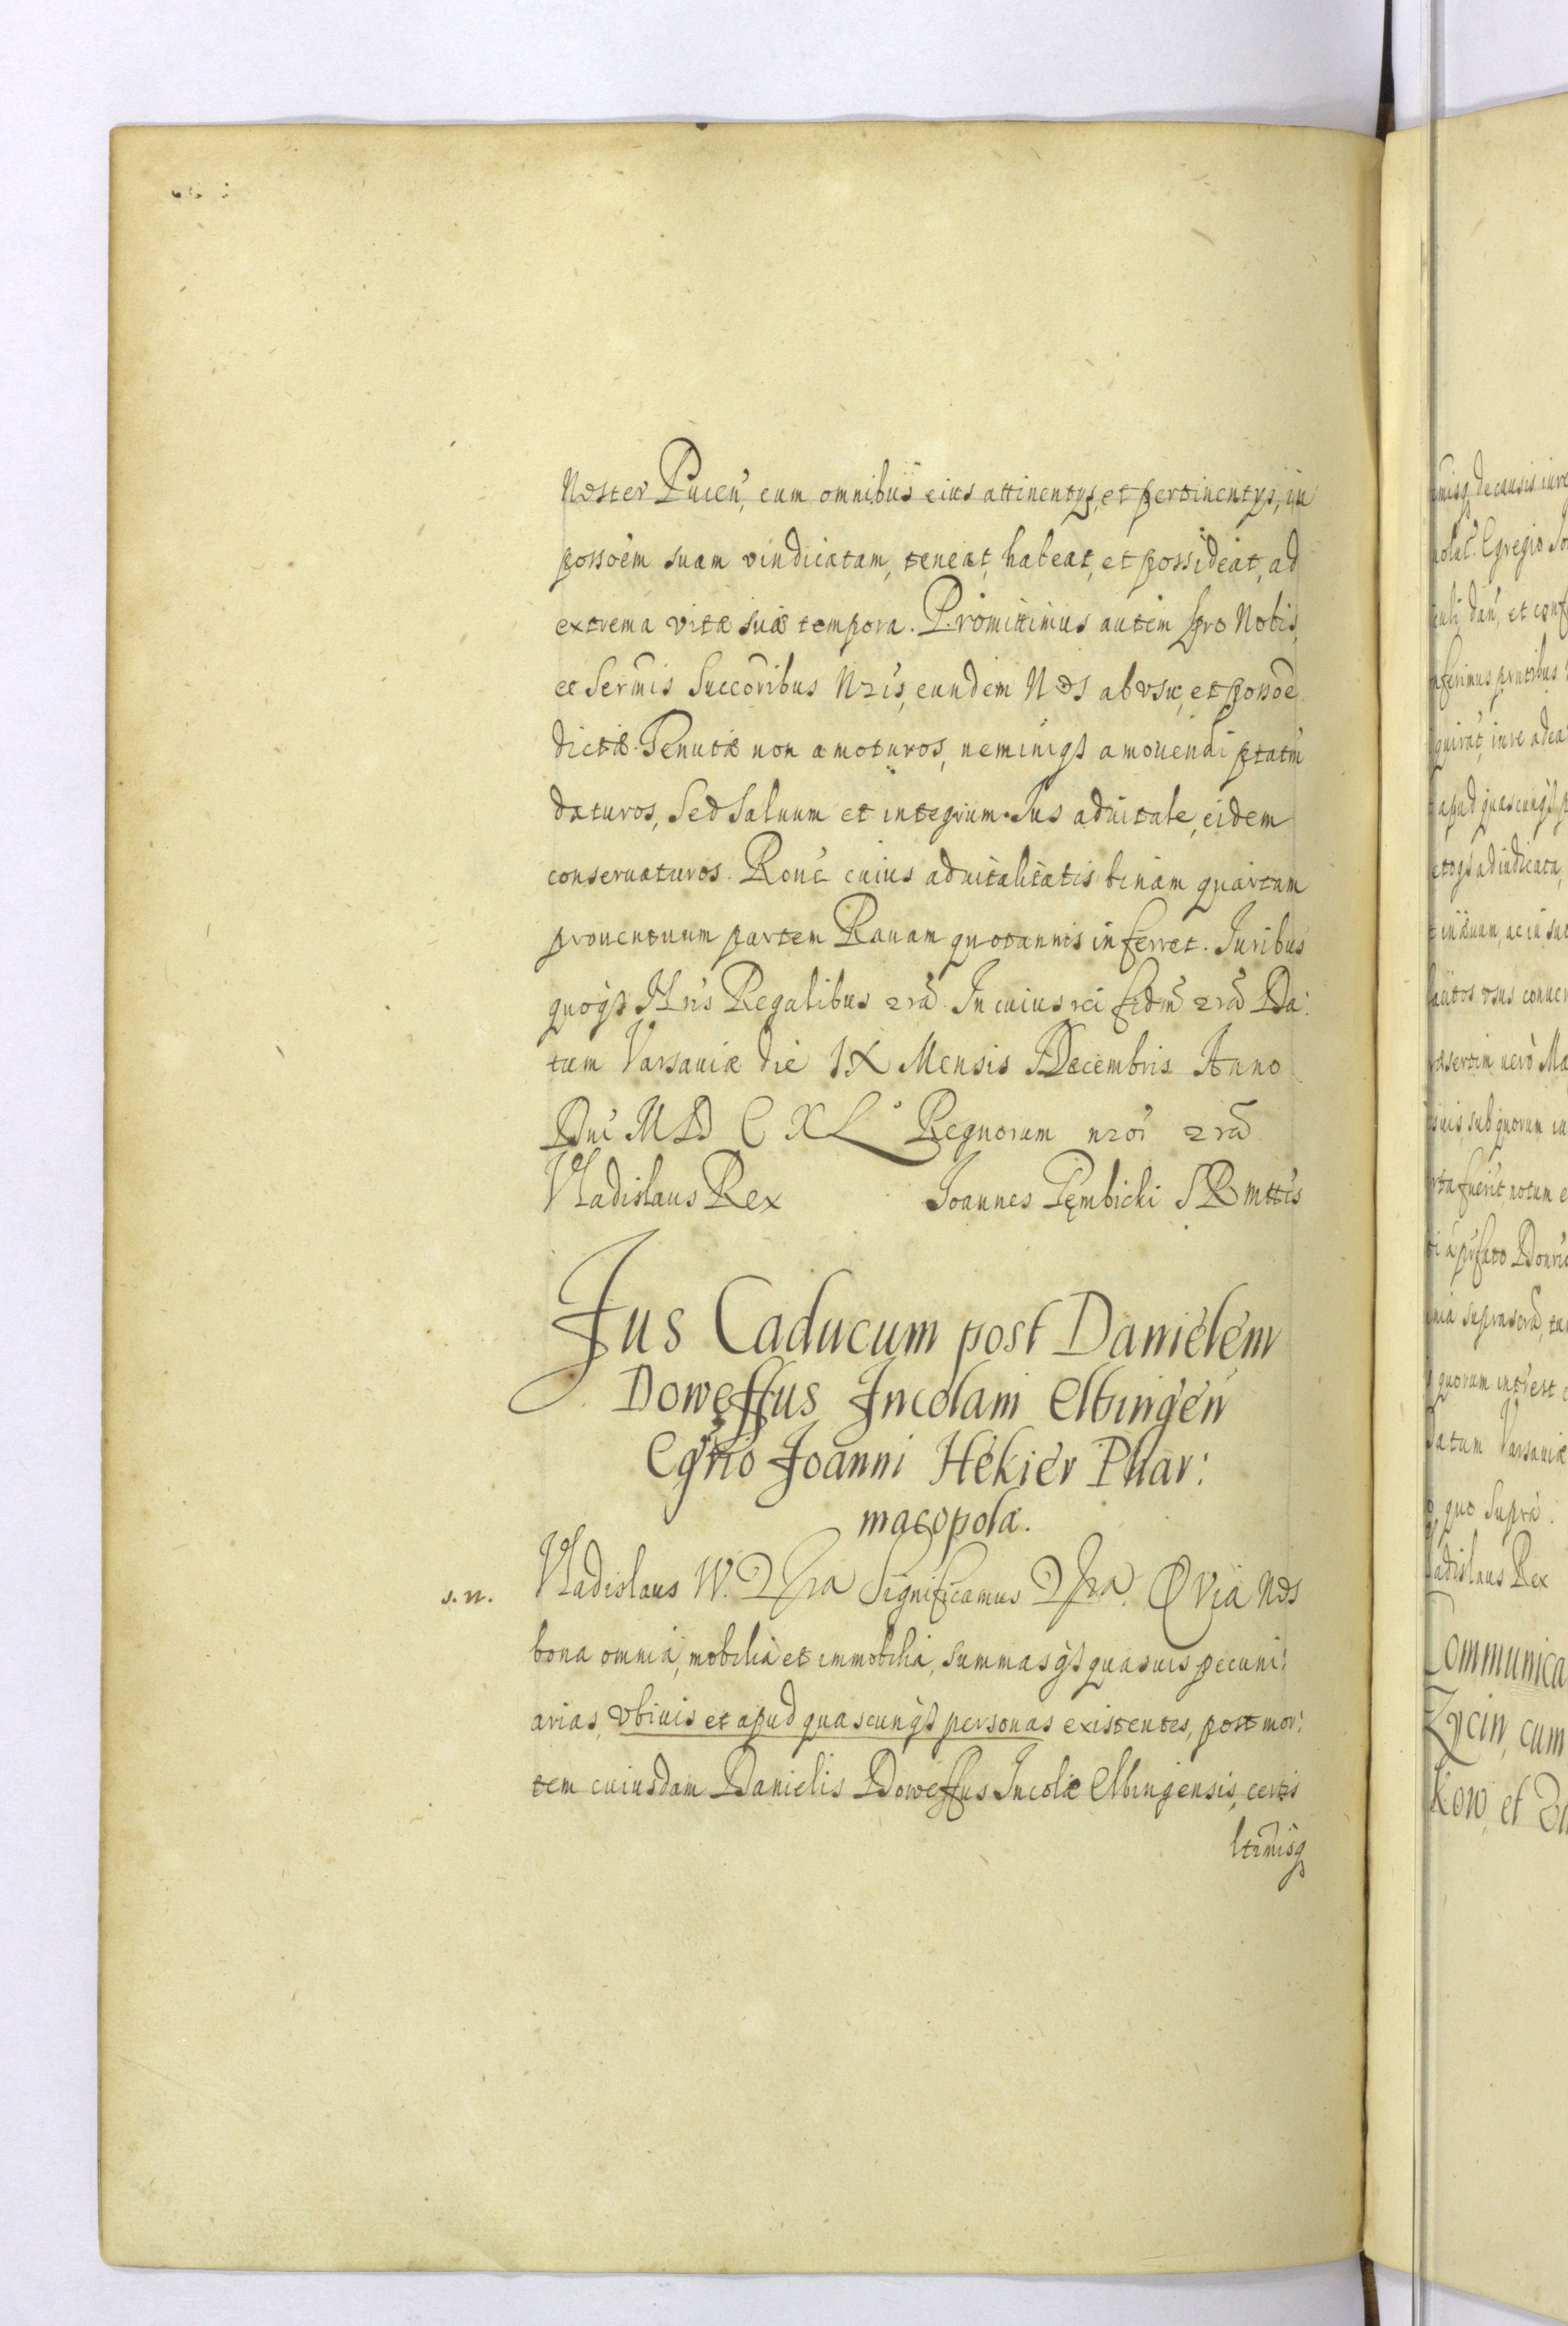 Noster Pucen, cum omnibus eius attinentys, et pertinentys, in
possoem suam vindicatam, teneat, habeat, et possideat, ad
extrema vitæ suæ tempora. Promittimus autem pro Nobis,
et Sermis Succoribus Nris, eundem Nos ab vsu, et possoe
dictæ Tenutæ non amoturos, neminiq; amouendi ptatm
daturos, Sed Saluum et integrum Ius aduitale, eidem
conseruaturos. Rone cuius aduitalitatis binam quartam
prouentuum partem Rauam quotannis inferret. Iuribus
quoq; Nris Regalibus 2ra. In cuius rei fidm 2ra Da:
tum Varsauiæ die IX Mensis Decembris Anno
Dni MDCXL° Regnorum nror 2ra
Vladislaus Rex Joannes Gembicki S R mttis
Jus Caducum post Danielem
Doweffus Incolam Elbingen
Egrio Joanni Hekier Phar:
macopolæ.
s. n. Vladislaus IV. 2ra Significamus 2ra. Quia Nos
bona omnia, mobilia et immobilia, summasq; quasuis pecuni:
arias, vbiuis et apud quascunq; personas existentes, post mor:
tem cuiusdam Danielis Doweffus Incolæ Elbingensis, certis
ltimisq